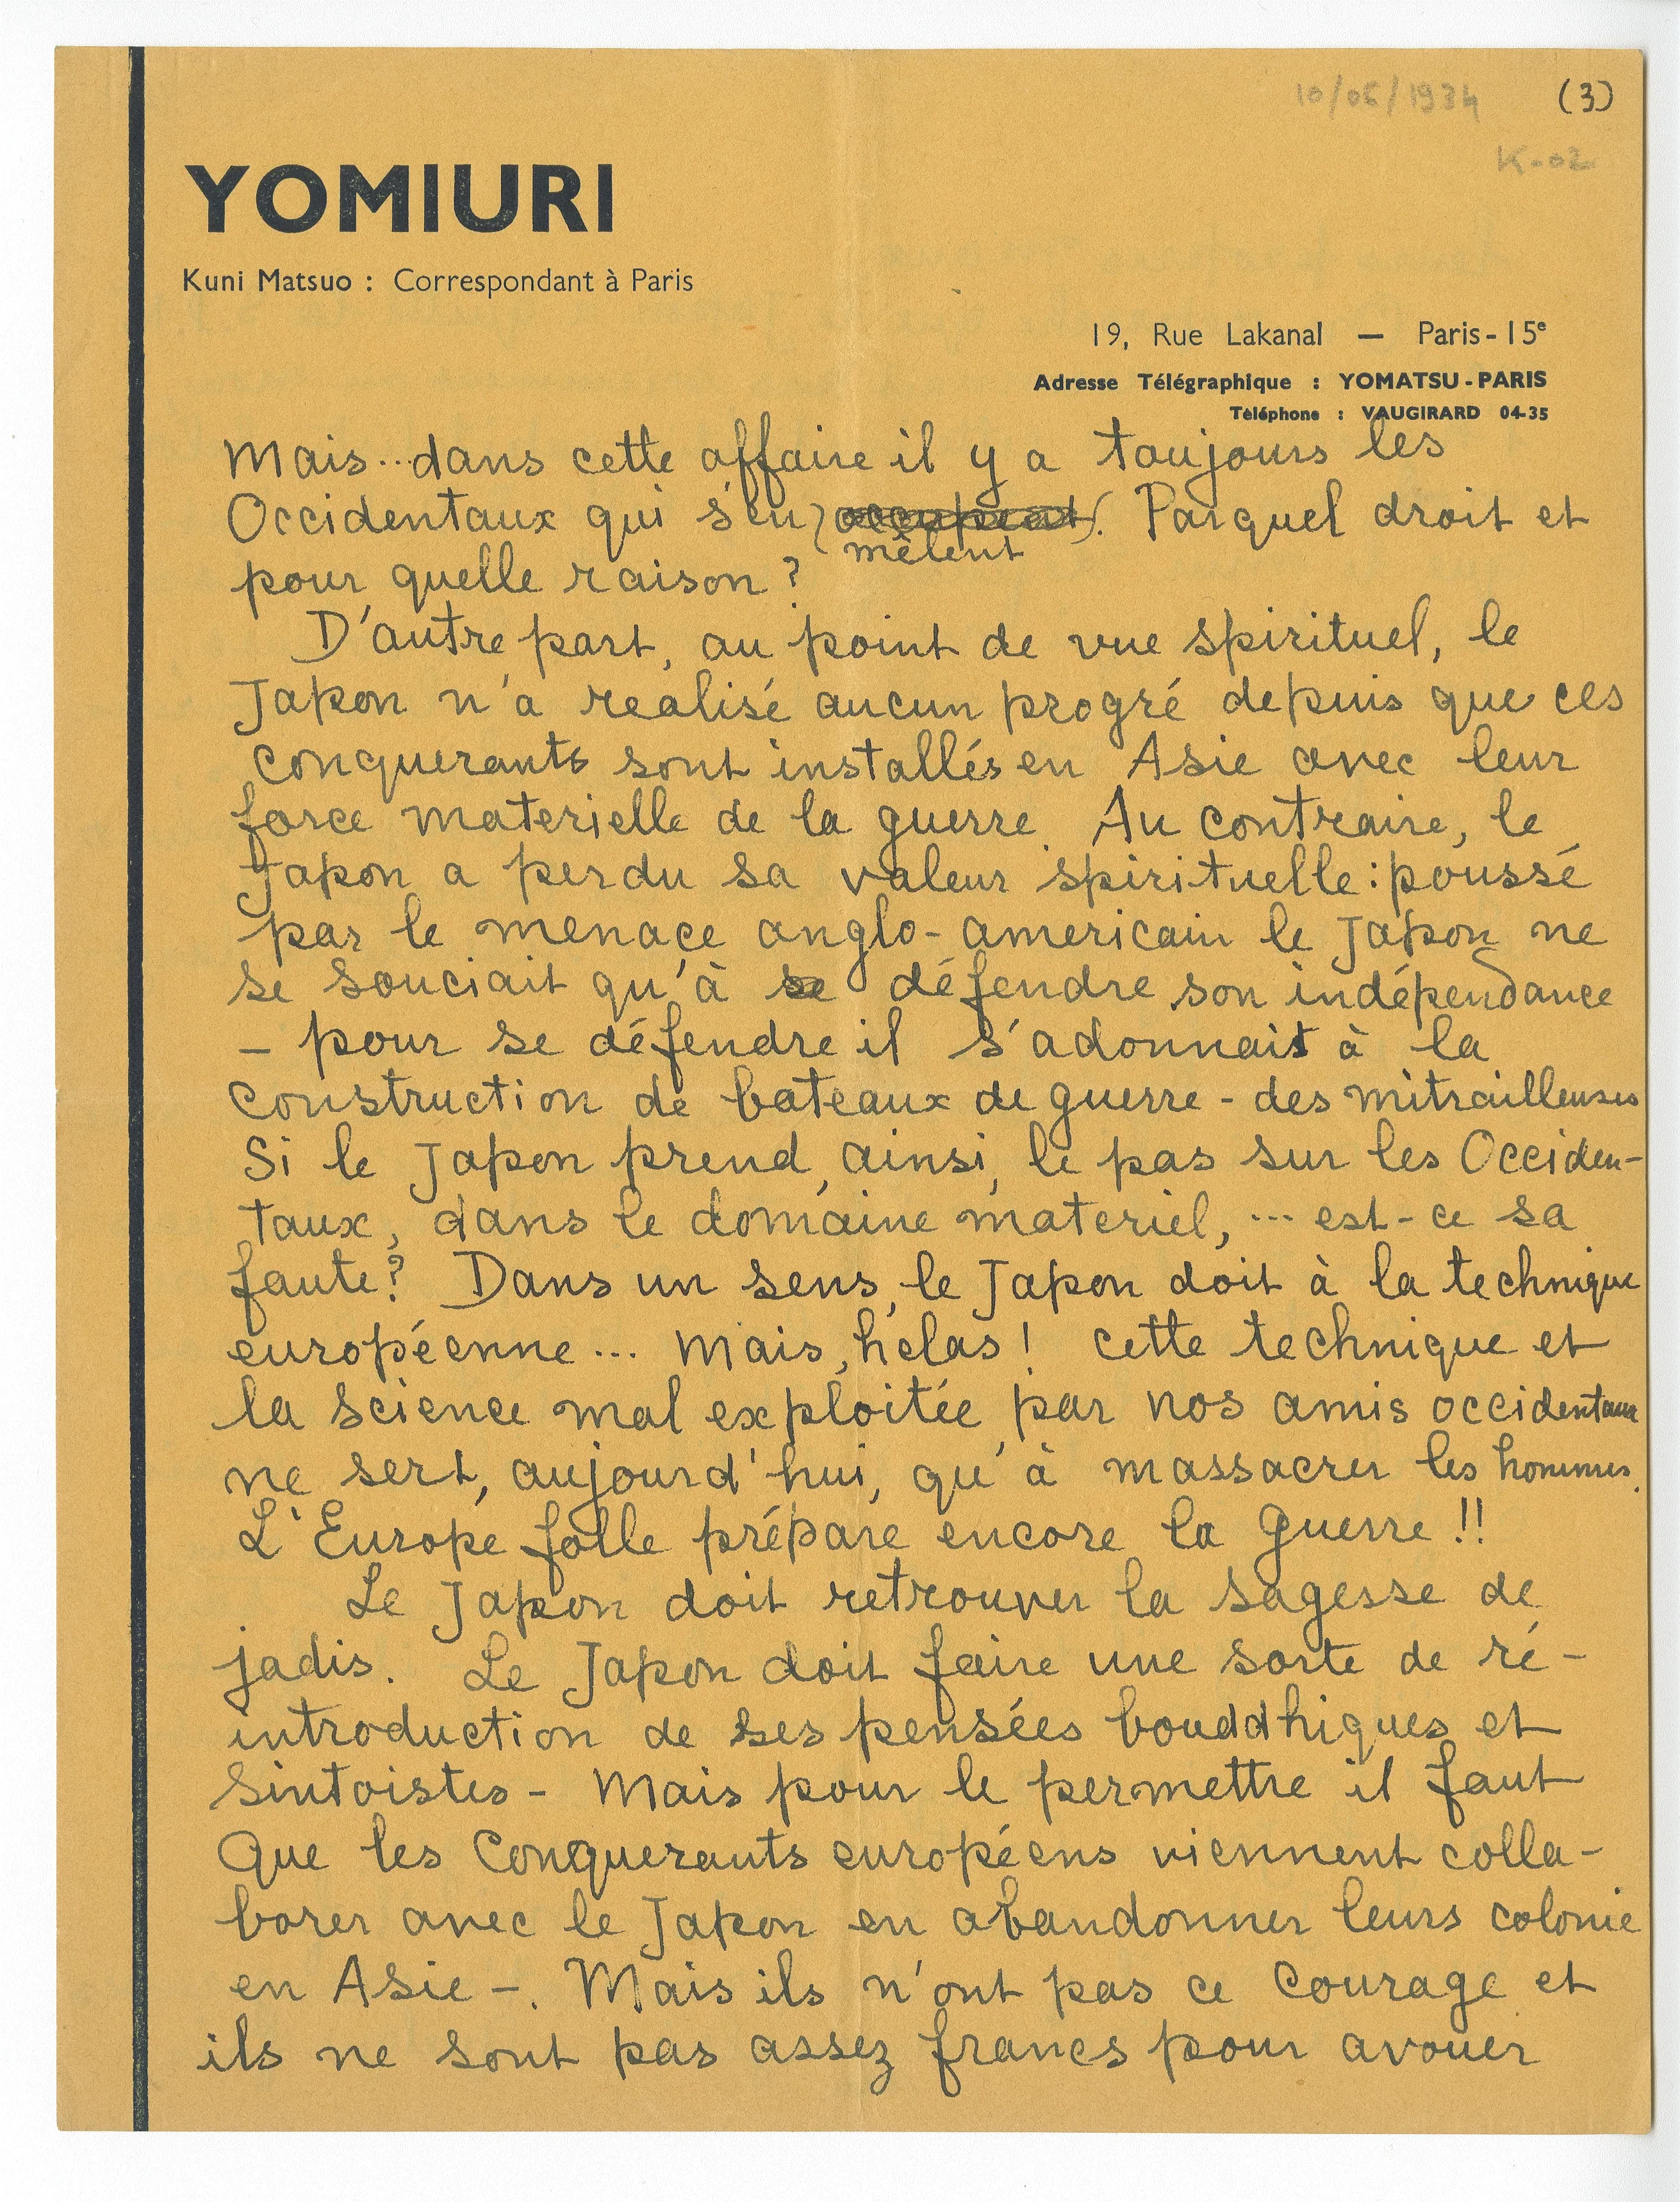 10/06/1934
(3)
K-02
YOMIURI
Kuni Matsuo : Correspondant à Paris
19, Rue Lakanal — Paris-15e
Adresse Télégraphique : YOMATSU-PARIS
Téléphone : VAUGIRARD 04-35
Mais... dans cette affaire il y a toujours les
Occidentaux qui s'en occupent. Par quel droit et
mêlent
pour quelle raison ?
D'autre part, au point de vue spirituel, le
Japon n'a realisé aucun progré depuis que ces
conquerants sont installés en Asie avec leur
force materielle de la guerre. Au contraire, le
Japon a perdu sa valeur spirituelle : poussé
par le menace anglo-americain le Japon ne
se souciait qu'à se défendre son indépendance
– pour se défendre il s'adonnait à la
construction de bateaux de guerre - des mitrailleuses
Si le Japon prend, ainsi, le pas sur les Occiden-
taux, dans le domaine materiel, ... est-ce sa
faute ? Dans un sens, le Japon doit à la technique
européenne ... Mais, hélas ! cette technique et
la science mal exploitée par nos amis occidentaux
ne sert, aujourd'hui, qu'à massacrer les hommes.
L'Europe folle prépare encore la guerre !!
Le Japon doit retrouver la sagesse de
jadis. Le Japon doit faire une sorte de ré-
introduction de ses pensées bouddhiques et
Sintoistes - Mais pour le permettre il faut
que les Conquerants européens viennent colla-
borer avec le Japon en abandonner leurs colonie
en Asie –. Mais ils n'ont pas ce courage et
ils ne sont pas assez francs pour avouer